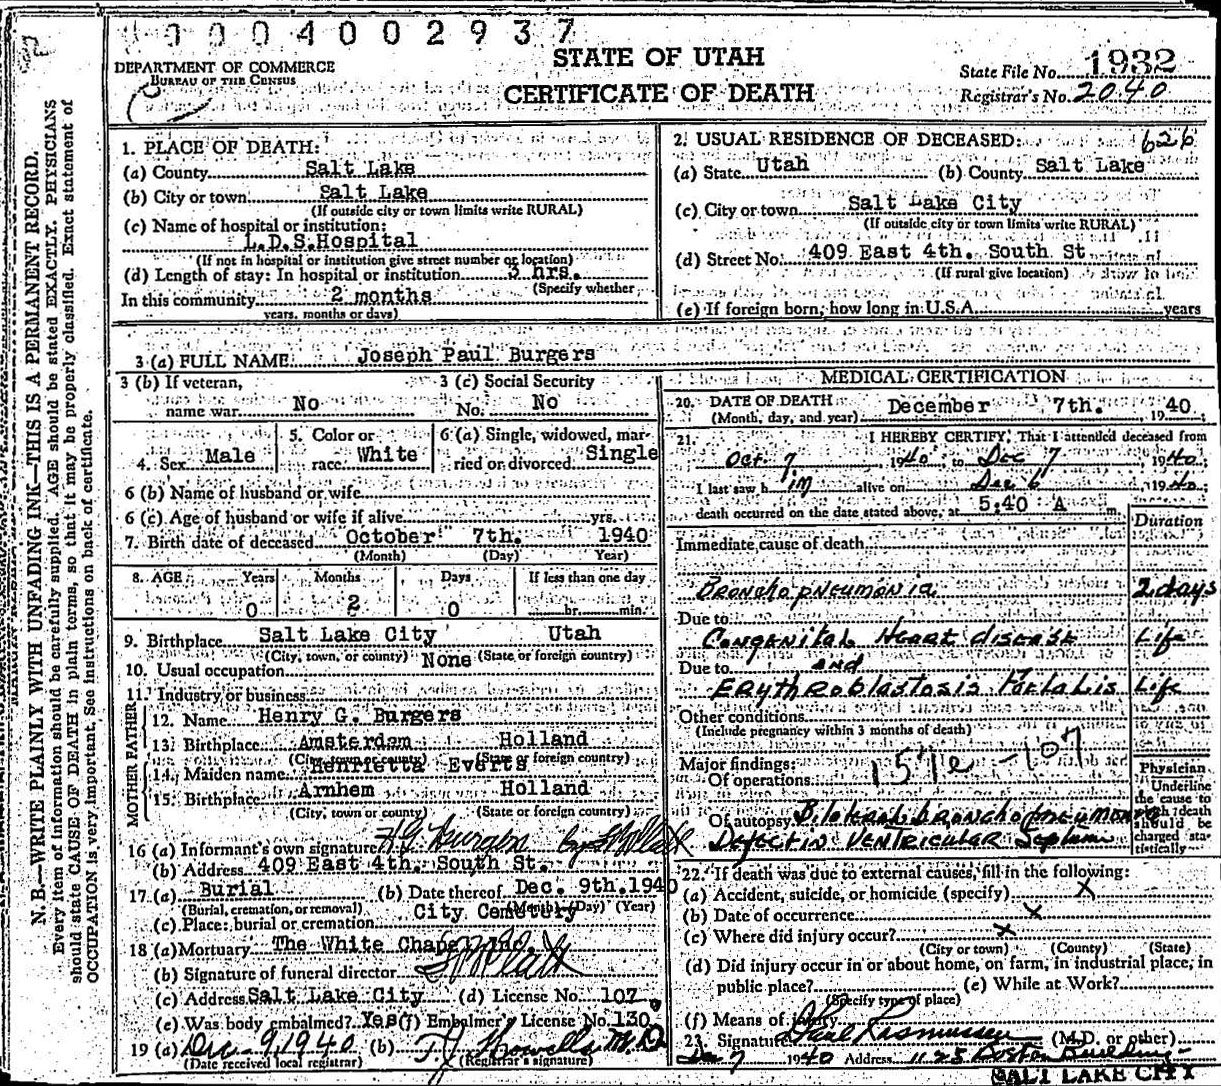 0004002937
DEPARTMENT OF COMMERCE
BUREAU OF THE CENSUS
STATE OF UTAH
CERTIFICATE OF DEATH
State File No. 1932
Registrar's No. 2040
N. B.—WRITE PLAINLY WITH UNFADING INK—THIS IS A PERMANENT RECORD.
Every item of information should be carefully supplied. AGE should be stated EXACTLY. PHYSICIANS
should state CAUSE OF DEATH in plain terms, so that it may be properly classified. Exact statement of
OCCUPATION is very important. See instructions on back of certificate.
1. PLACE OF DEATH:
(a) County Salt Lake
(b) City or town Salt Lake
(If outside city or town limits write RURAL)
(c) Name of hospital or institution:
L.D.S.Hospital
(If not in hospital or institution give street number or location)
(d) Length of stay: In hospital or institution 3 hrs.
(Specify whether
In this community 2 months
years, months or days)
2. USUAL RESIDENCE OF DECEASED: 626
(a) State Utah (b) County Salt Lake
(c) City or town Salt Lake City
(If outside city or town limits write RURAL)
(d) Street No. 409 East 4th. South St
(If rural give location)
(e) If foreign born, how long in U.S.A. years
3 (a) FULL NAME Joseph Paul Burgers
3 (b) If veteran, name war No
3 (c) Social Security No. No
4. Sex Male
5. Color or race White
6 (a) Single, widowed, married or divorced Single
6 (b) Name of husband or wife
6 (c) Age of husband or wife if alive yrs.
7. Birth date of deceased October 7th. 1940
(Month) (Day) Year)
8. AGE Years Months Days If less than one day
0 2 0 hr. min.
9. Birthplace Salt Lake City Utah
(City, town, or county) (State or foreign country)
10. Usual occupation None
11. Industry or business
FATHER
12. Name Henry G. Burgers
13. Birthplace Amsterdam Holland
(City, town or county) (State or foreign country)
MOTHER
14. Maiden name Henrietta Everts
15. Birthplace Arnhem Holland
(City, town or county) (State or foreign country)
16 (a) Informant's own signature H G Burgers by
(b) Address 409 East 4th. South St.
17 (a) Burial (b) Date thereof Dec. 9th. 1940
(Burial, cremation, or removal) (Month) (Day) (Year)
(c) Place: burial or cremation City Cemetery
18 (a) Mortuary The White Chapel Inc.
(b) Signature of funeral director
(c) Address Salt Lake City (d) License No. 107
(e) Was body embalmed? Yes (f) Embalmer's License No. 130
19 (a) Dec. 9, 1940 (b) T J Howells M.D.
(Date received local registrar) (Registrar's signature)
MEDICAL CERTIFICATION
20. DATE OF DEATH December 7th. 1940
(Month, day, and year)
21. I HEREBY CERTIFY, That I attended deceased from
Oct. 7, 1940, to Dec 7, 1940;
I last saw h im alive on Dec 6, 1940;
death occurred on the date stated above, at 5:40 A m.
Duration
Immediate cause of death
Bronchopneumonia 2 days
Due to
Congenital Heart disease Life
Due to and
Erythroblastosis Foetalis Life
Other conditions
(Include pregnancy within 3 months of death)
Major findings:
Of operations 157e - 107
Of autopsy Bilateral bronchopneumonia
Defect in Ventricular Septum
Physician
Underline
the cause to
which death
should be
charged sta-
tistically
22. If death was due to external causes, fill in the following:
(a) Accident, suicide, or homicide (specify) X
(b) Date of occurrence X
(c) Where did injury occur? X
(City or town) (County) (State)
(d) Did injury occur in or about home, on farm, in industrial place, in
public place? (e) While at Work?
(Specify type of place)
(f) Means of injury
23. Signature Paul Rasmussen (M.D. or other)
Dec 7 1940 Address 1125 Boston Building
SALT LAKE CITY